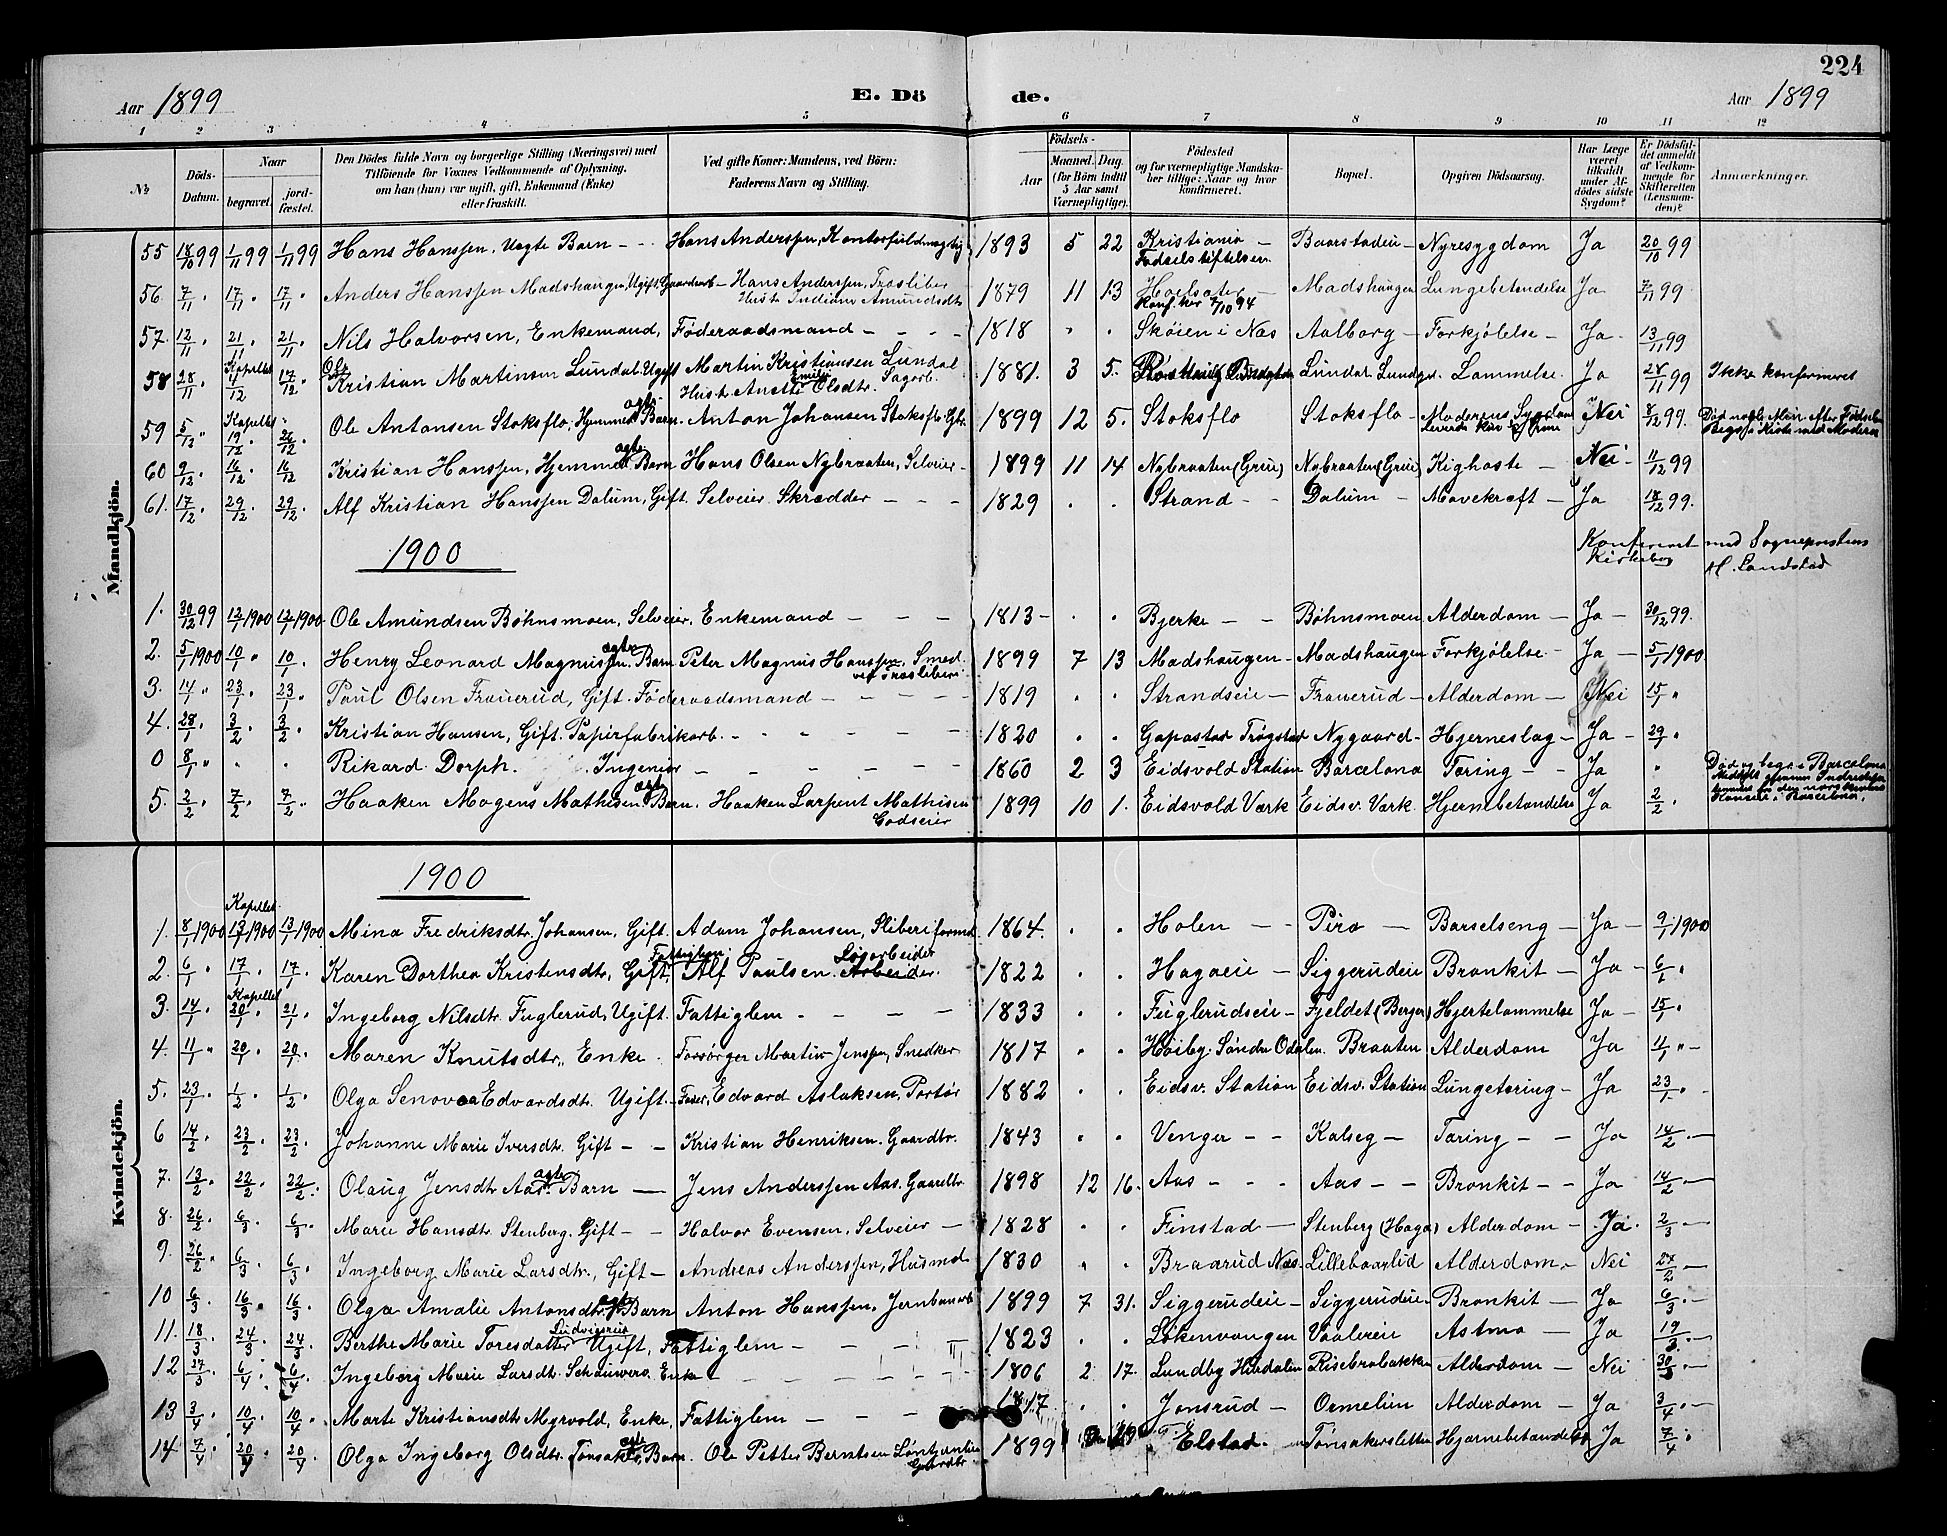 224
Aar 1899 E. Dö de. Aar 1899
1 2 3 4 5 6 7 8 9 10 11 12
№
Döds-Datum.
Naar begravet. jordfæstet.
Den Dödes fulde Navn og borgerlige Stilling (Næringsvei) med Tilföiende for Voxnes Vedkommende af Oplysning, om han (hun) var ugift, gift, Enkemand (Enke) eller fraskilt.
Ved gifte Koner: Mandens, ved Börn: Faderens Navn og Stilling.
Födsels-
Aar Maaned. Dag. (for Börn indtil 5 Aar samt Værnepligtige).
Födested og for værnepligtige Mandskaber tillige: Naar og hvor konfirmeret.
Bopæl.
Opgiven Dödsaarsag.
Har Læge været tilkaldt under Afdödes sidste Sygdom?
Er Dödsfaldet anmeldt af Vedkommende for Skifteretten (Lensmanden)?
Anmærkninger.
Mandkjön.
55 18/10 99 1/11 99 1/11 99 Hans Hanssen, Uægte Barn - - Hans Anderssen, Kontorfuldmægtig 1893 5 22 Kristiania Fødselsstiftelsen Baarstadeie Nyresygdom Ja 20/10 99
56. 7/11 " 17/11 " 17/11 " Anders Hanssen Madshaugen, Ugift, Gaardarb. Hans Anderssen, Træsliber Hustr. Indiane Amundsdtr. 1879 11 13 Konf. her 7/10 94 Madshaugen Lungebetændelse Ja 7/11 99
57. 12/11 " 21/11 " 21/11 " Nils Halvorsen, Enkemand, Føderaadsmand - - - 1818 " " Skøien i Næs Aalborg Forkjølelse Ja 13/11 99
58 28/11 " Kapellet 4/12 17/12 " Ole Kristian Martinsen Lundal, Ugift Martin Kristiansen Lundal Sagarb. Hustr. Anette Emilie Olsdtr. 1881. 3 5. Lundal Lammelse. Ja 28/11 99 Ikke konfirmeret
59 5/12 " Kapellet 19/12 " 26/12 " Ole Antonsen Stoksflo, Hjemmed. ægte Barn. Anton Johansen Stoksflo, Gbr. 1899 12 5. Stoksflo Stoksflo Moderens Sygdom Nei 8/12 99. Død nogle Min. efter Fødselen Begr. i Kiste med Moderen
60 9/12 " 16/12 16/12 Kristian Hanssen, Hjemmed. ægte Barn Hans Olsen Nybraaten, Selveier 1899 11 14 Nybraaten (Grue) Nybraaten (Grue) Kighoste Nei 11/12 99
61. 17/12 " 29/12 " 29/12 " Alf Kristian Hanssen Dalum, Gift. Selveier. Skrædder - - 1829 " " Strand Dalum Mavekræft Ja 18/12 99.
1900
Konfereret med Sognepræstens Kirkebog M. Landstad
1. 30/12 99 12/1 1900 12/1 1900 Ole Amundsen Bøhnsmoen, Selveier, Enkemand 1813 " " Bjerke Bøhnsmoen Alderdom Ja 30/12 99.
2. 5/1 1900 10/1 " 10/1 " Henry Leonard Magnussen, ægte Barn Peter Magnus Hanssen, Smed ved Træsliberi 1899 7 13 Madshaugen Madshaugen Forkjølelse Ja 5/1 1900
3. 14/1 " 23/1 " 23/1 " Paul Olsen Frauerud, Gift. Føderaadsmand 1819 " " Strandseie Frauerud Alderdom Nei 15/1 "
4. 28/1 " 3/2 " 3/2 " Kristian Hansen, Gift. Papirfabrikarb. 1820 " " Gopastad Trøgstad Nygaard Hjerneslag Ja 29/1 "
0 8/1 " " " Rikard Dorph. Ingeniør 1860 2 3 Eidsvold Station Barcelona Tæring Ja " Død og begr. i Barcelona
5. 2/2 " 7/2 " 7/2 " Haaken Mogens Mathisen ægte Barn. Haaken Larpent Mathisen Godseier 1899 10 1. Eidsvold Værk Eidsv. Værk. Hjernebetændelse Ja 2/2 "
Kvindekjön.
1900
1. 8/1 1900 Kapellet 13/1 1900 13/1 1900 Mina Fredriksdtr. Johansen, Gift. Adam Johansen, Sliberiformd. 1864. " " Holen Piro Barselseng Ja 9/1 1900
2. 6/1 " 17/1 " 17/1 " Karen Dorthea Kristensdtr, Gift, Fattiglem Alf Paulsen. Løsarbeider Arbeider. 1822 " " Hagaeie Siggerudeie Bronkit Ja 6/1 "
3. 14/1 " Kapellet 20/1 " 21/1 " Ingeborg Nilsdtr. Fuglerud, Ugift. Fattiglem 1833 " " Fuglerudseie Fjeldet (Berger) Hjertelammelse Ja 15/1 "
4. 11/1 " 20/1 " 20/1 " Maren Knutsdtr., Enke. Forsørger Martin Jenssen, Snedker 1817 " " Høiby, Søndre Odalen. Braaten Alderdom Ja 11/1 "
5. 23/1 " 1/2 " 1/2 " Olga Senova Edvardsdtr. Ugift. Fader, Edvard Aslaksen, Portør 1882 " " Eidsv. Station Eidsv. Station Lungetæring Ja 23/1 "
6 14/2 " 23/2 " 23/2 " Johanne Marie Iversdtr. Gift Kristian Henriksen. Gaardbr. 1843 " " Venger Kalseg Tæring Ja 14/2 "
7. 13/2 " 22/2 " 22/2 " Olaug Jensdtr. Aas. ægte Barn Jens Anderssen Aas. Gaardbr. 1898 12 16. Aas Aas Bronkit Ja 14/2 "
8. 26/2 " 6/3 " 6/3 " Marie Hansdtr. Stenberg. Gift Halvor Evensen, Selveier 1828 " " Finstad Stenberg (Haga) Alderdom Ja. 2/3
9. 26/2 " 6/3 " 6/3 " Ingeborg Marie Larsdtr., Gift Andreas Anderssen, Husmd. 1830 " " Braarud Næs Lillebaarlid Alderdom Nei 27/2
10 6/3 " 16/3 " 16/3 " Olga Amalie Antonsdtr. ægte Barn Anton Hanssen, Jernbanearb. 1899 7 31. Siggerudeie Siggerudeie Bronkit Ja 6/3 "
11. 18/3 " 24/3 " 24/3 " Berthe Marie Toresdatter Ludvigsrud Ugift, Fattiglem 1823 " " Løkenvangen Vaalereie Astma Ja 19/3 "
12 27/3 " 6/4 " 6/4 " Ingeborg Marie Larsdtr. Enke 1806 2. 17. Lundby Hurdalen Risebrobakken Alderdom Nei 30/3 "
13 3/4 " 10/4 " 10/4 " Marte Kristiansdtr Myrvold, Enke, Fattiglem 1817 " " Jonsrud Ormelien Alderdom Ja 3/4 "
14 7/4 " 20/4 " 20/4 " Olga Ingeborg Olsdtr. Tønsaker, ægte Barn. Ole Petter Berntsen Gaardbr. 1899 Elstad. Tønsakersletten Hjærnebetændelse Ja 7/4 "